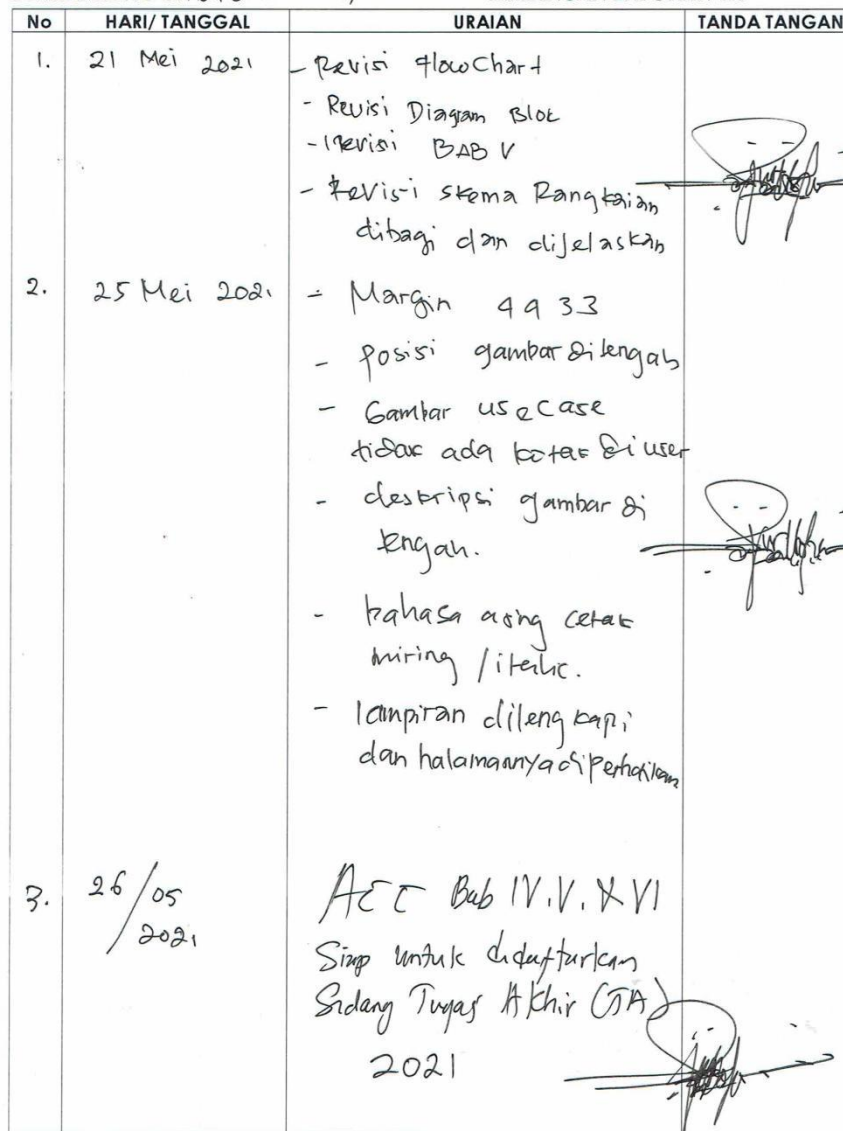 No HARI/ TANGGAL URAIAN TANDA TANGAN
1. 21 Mei 2021 - Revisi FlowChart
- Revisi Diagram Blok
- Revisi BAB V
- Revisi skema Rangkaian
dibagi dan dijelaskan
2. 25 Mei 2021 - Margin 4 4 3 3
- posisi gambar ditengah
- Gambar use case
tidak ada kotak di user
- deskripsi gambar di
tengah.
- bahasa asing cetak
miring / italic.
- lampiran dilengkapi
dan halamannya diperhatikan
3. 26/05
2021
ACC Bab IV. V. & VI
Siap untuk didaftarkan
Sidang Tugas Akhir (TA)
2021